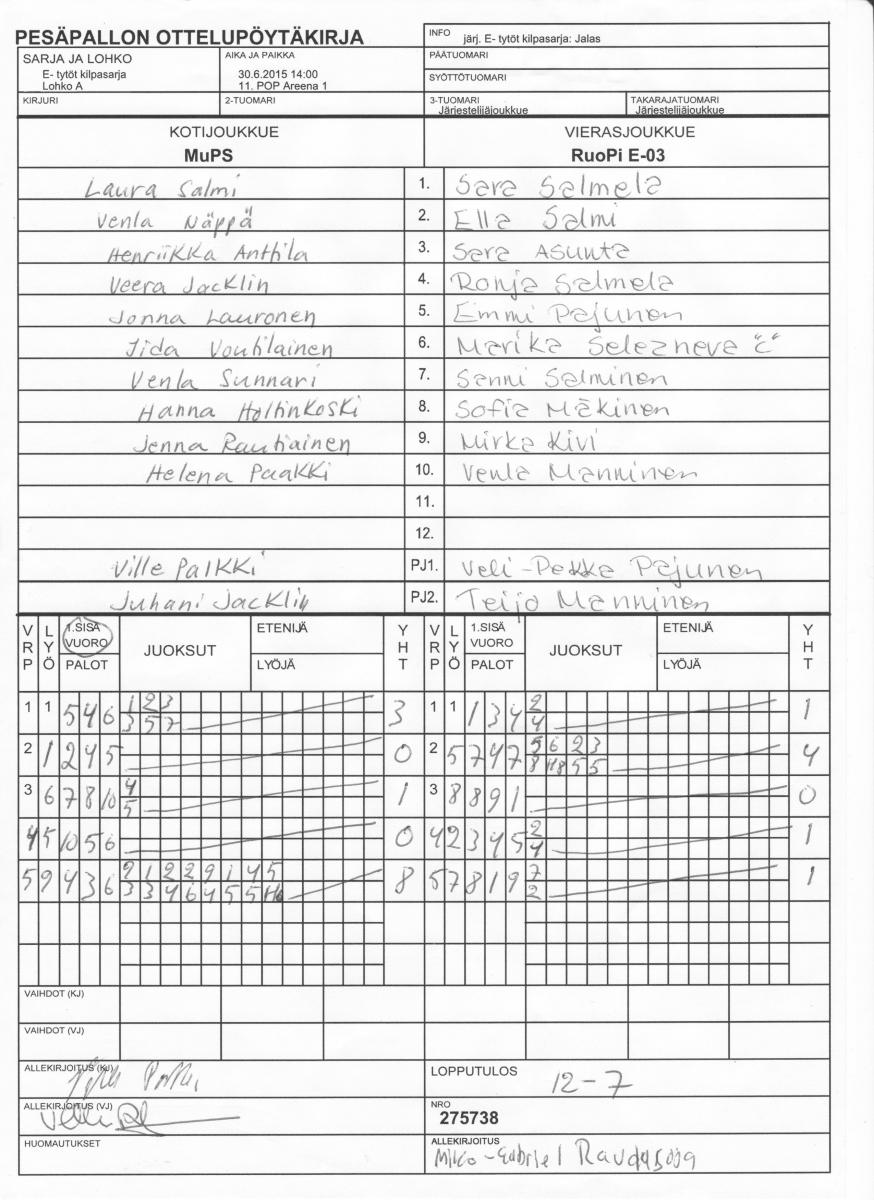 PESÄPALLON OTTELUPÖYTÄKIRJA
INFO järj. E- tytöt kilpasarja: Jalas
SARJA JA LOHKO
E- tytöt kilpasarja
Lohko A
AIKA JA PAIKKA
30.6.2015 14:00
11. POP Areena 1
PÄÄTUOMARI
SYÖTTÖTUOMARI
KIRJURI
2-TUOMARI
3-TUOMARI
Järjestelijäjoukkue
TAKARAJATUOMARI
Järjestelijäjoukkue
KOTIJOUKKUE
MuPS
VIERASJOUKKUE
RuoPi E-03
Laura Salmi 1. Sara Salmela
Venla Näppä 2. Ella Salmi
Henriikka Anttila 3. Sara Asunta
Veera Jacklin 4. Ronja Salmela
Jonna Lauronen 5. Emmi Pajunen
Iida Voutilainen 6. Marika Selezneva "C"
Venla Sunnari 7. Sanni Salminen
Hanna Holtinkoski 8. Sofia Mäkinen
Jenna Rautiainen 9. Mirka Kivi
Helena Paakki 10. Venla Manninen
11.
12.
Ville Palkki PJ1. Veli-Pekka Pajunen
Juhani Jacklin PJ2. Teijo Manninen
VRP LYÖ 1.SISÄ VUORO PALOT JUOKSUT ETENIJÄ LYÖJÄ YHT VRP LYÖ 1.SISÄ VUORO PALOT JUOKSUT ETENIJÄ LYÖJÄ YHT
1 1 5 4 6 1 2 3 3 1 1 1 3 4 2 1
3 5 7 4
2 1 2 4 5 0 2 5 7 4 7 5 6 2 3 4
8 H8 5 5
3 6 7 8 10 4 1 3 8 8 9 1 0
5
4 5 10 5 6 0 4 2 3 4 5 2 1
4
5 9 4 3 6 2 1 2 2 9 1 4 5 8 5 7 8 1 9 7 1
3 3 4 6 4 5 5 H 2
VAIHDOT (KJ)
VAIHDOT (VJ)
ALLEKIRJOITUS (KJ)
LOPPUTULOS 12-7
ALLEKIRJOITUS (VJ)
NRO
275738
HUOMAUTUKSET
ALLEKIRJOITUS